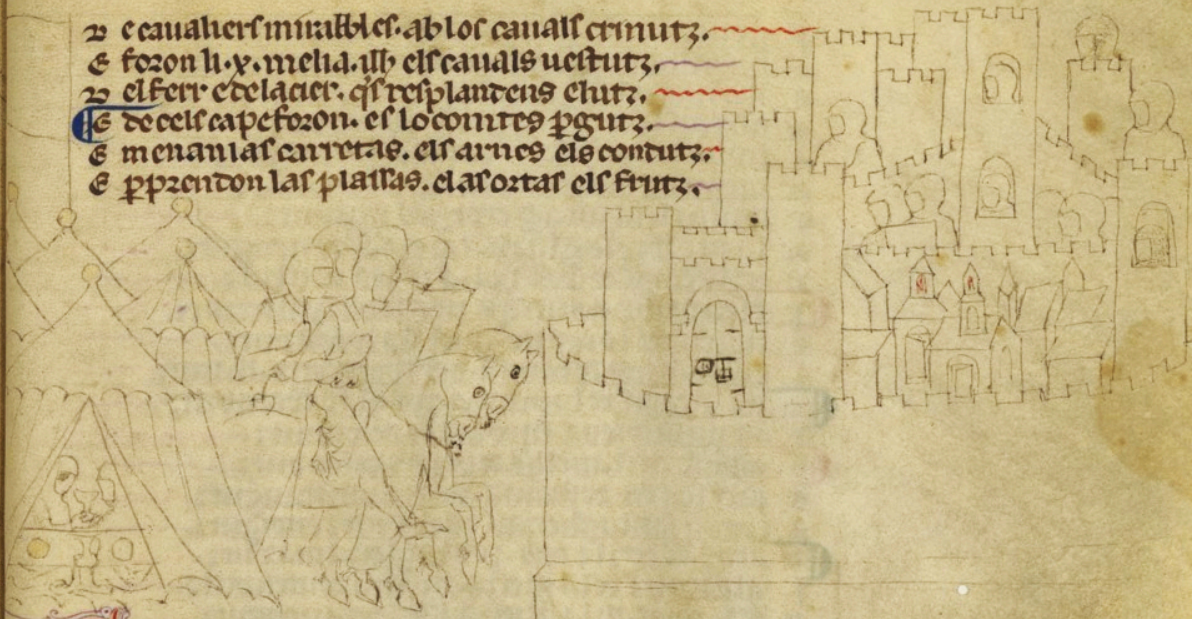 D e cavaliers mirables. ab los cavals crinutz.
E foron li .x. melia. els cavals vestutz.
D el ferr e de lacier. qs resplandens e lutz.
E de cels cap e foron. es lo comtes pgutz.
E menan las carretas. els arnes els condutz.
E pprendon las plassas. e las ortas els frutz.